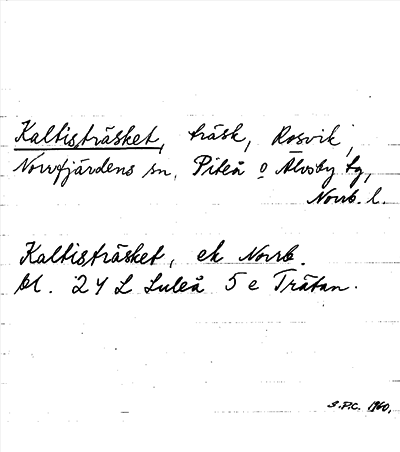 Kaltisträsket, träsk, Rosvik,
Norrfjärdens sn, Piteå o Älvsby tg,
Norrb. l.
Kaltisträsket, ek Norrb.
bl. 24 L Luleå 5 e Trätan.
S.P.C. 1960.